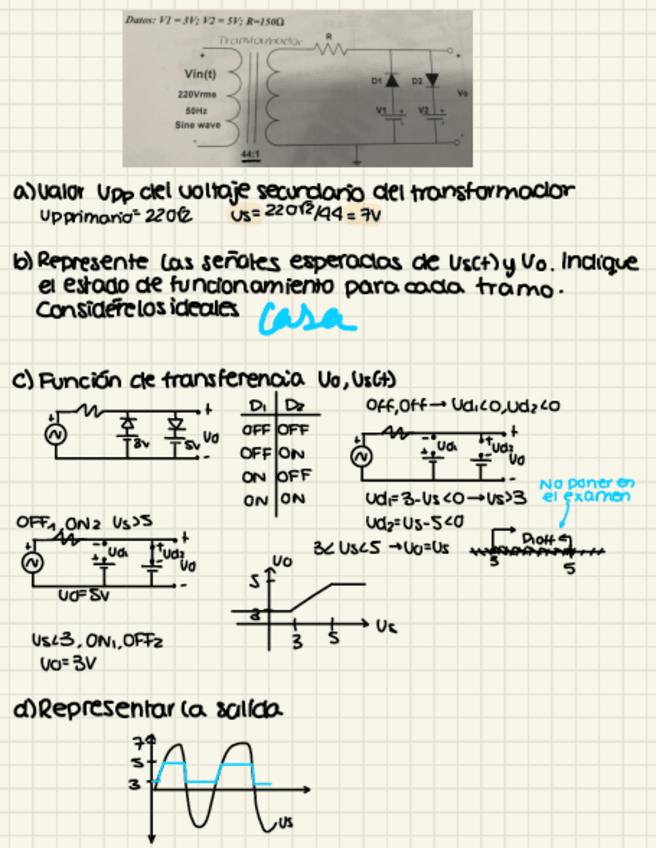 Datos: V1 = 3V; V2 = 5V; R=150Ω
Transformador
R
+
+
Vin(t)
D1
D2
Vo
220Vrms
V1
+
V2
+
50Hz
Sine wave
-
-
44:1
a) Valor Upp del voltaje secundario del transformador
Up primario = 220√2
Us = 220√2/44 = 7V
b) Represente las señales esperadas de Us(t) y Uo. Indique
el estado de funcionamiento para cada tramo.
Considérelos ideales
Casa
c) Función de transferencia Uo, Us(t)
D1 D2
OFF OFF
OFF ON
ON OFF
ON ON
3V
5V
Uo
+
-
Off, Off → Ud1<0, Ud2<0
Ud1
Ud2
Uo
+
-
Ud1 = 3-Us<0 → Us>3
Ud2 = Us-5<0
3<Us<5 → Uo=Us
No poner en
el examen
D1 off
3
5
OFF1, ON2 Us>5
Ud1
Ud2
Uo
+
-
Uo=5V
Us<3, ON1, OFF2
Uo=3V
Uo
5
3
3
5
Us
d) Representar la salida
7
5
3
Us